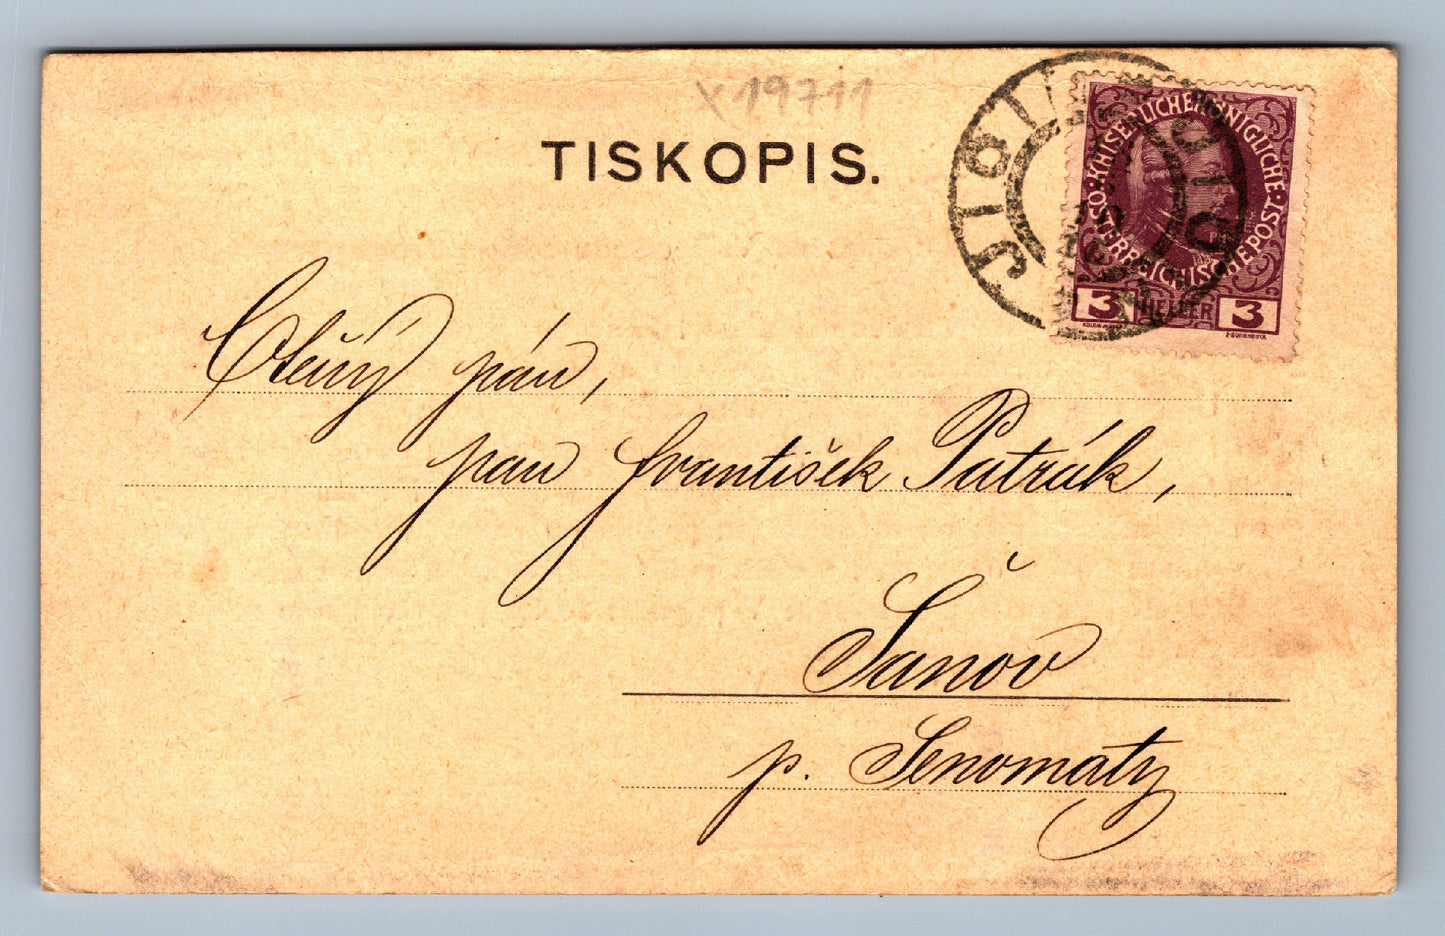 x 19711
TISKOPIS.
KAISERLICHE KÖNIGLICHE
ÖSTERREICHISCHE POST
3 HELLER 3
Ctěný pán,
pan František Patrák,
Šanov
p. Senomaty